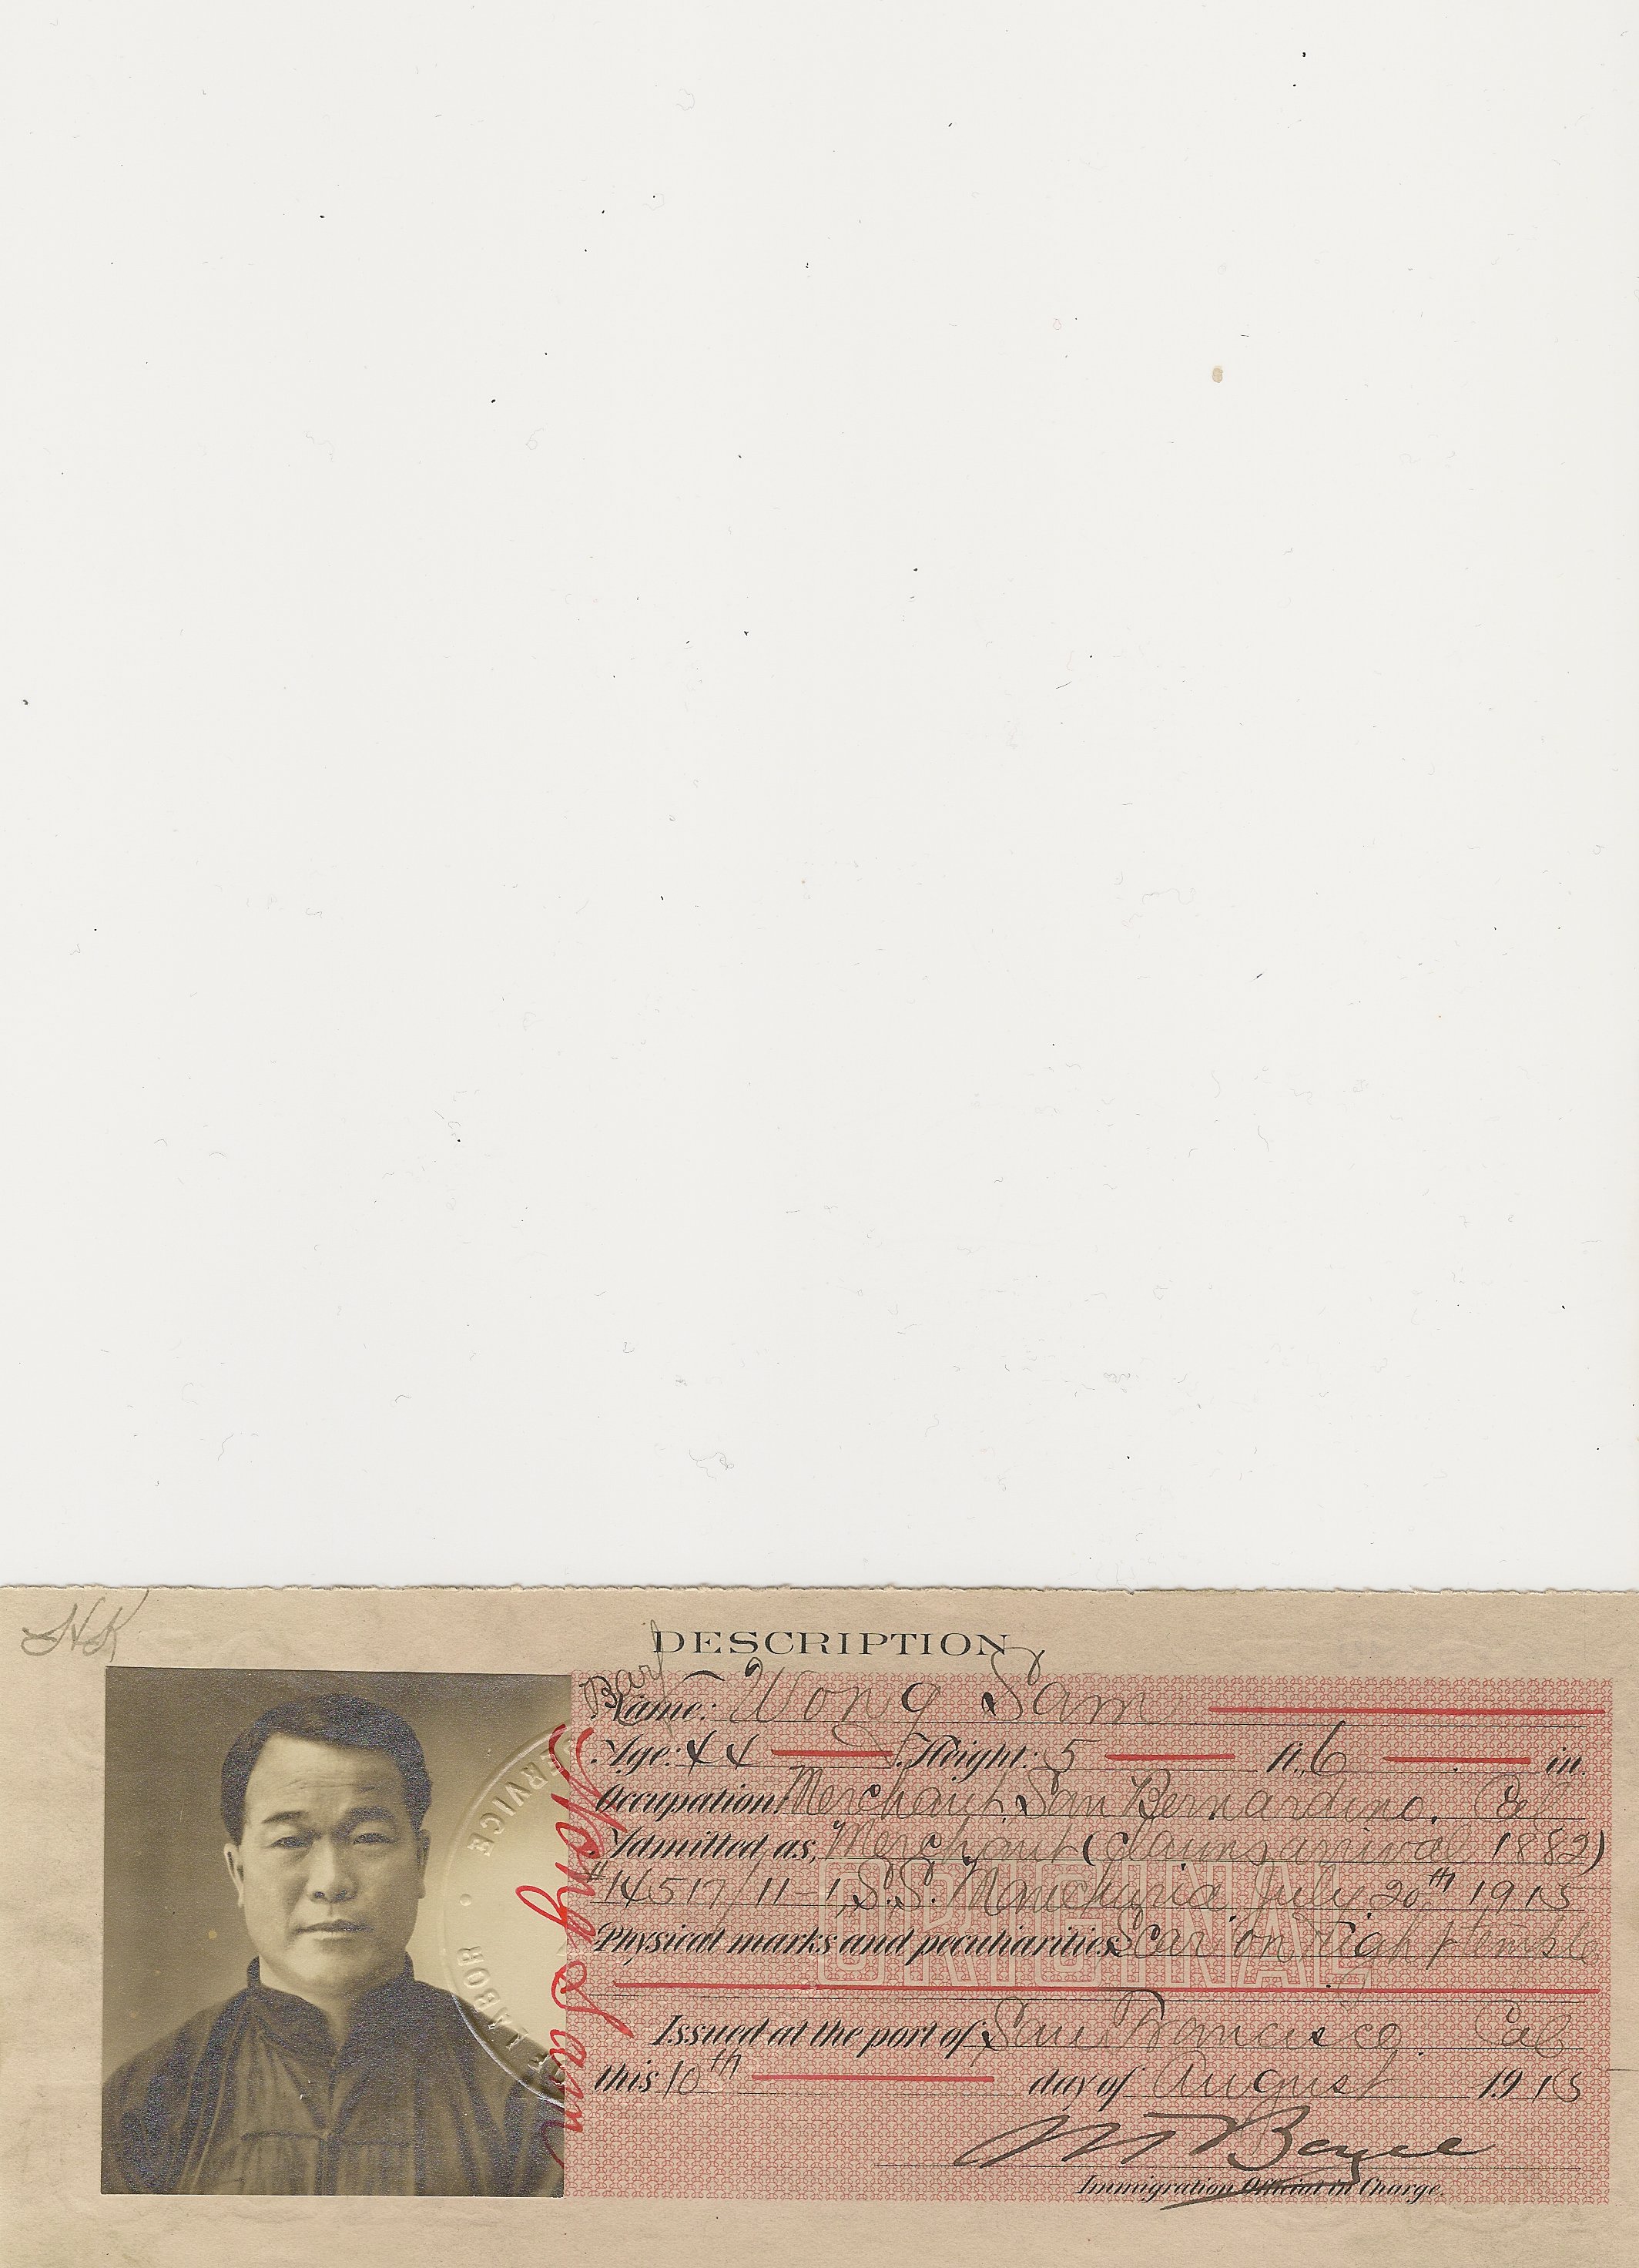 HK
DESCRIPTION
Name: Wong Sam
Age: 44 Height: 5 ft. 6 in.
Occupation: Merchant, San Bernardino. Cal
Admitted as, Merchant (claims arrival 1882)
#14517/11-1, S.S. Manchuria, July 20th 1915
Physical marks and peculiarities Scar on right temple
ORIGINAL
Issued at the port of San Francisco. Cal
this 10th day of August 1915
Immigration Official in Charge.
Wong Sam
SERVICE
LABOR